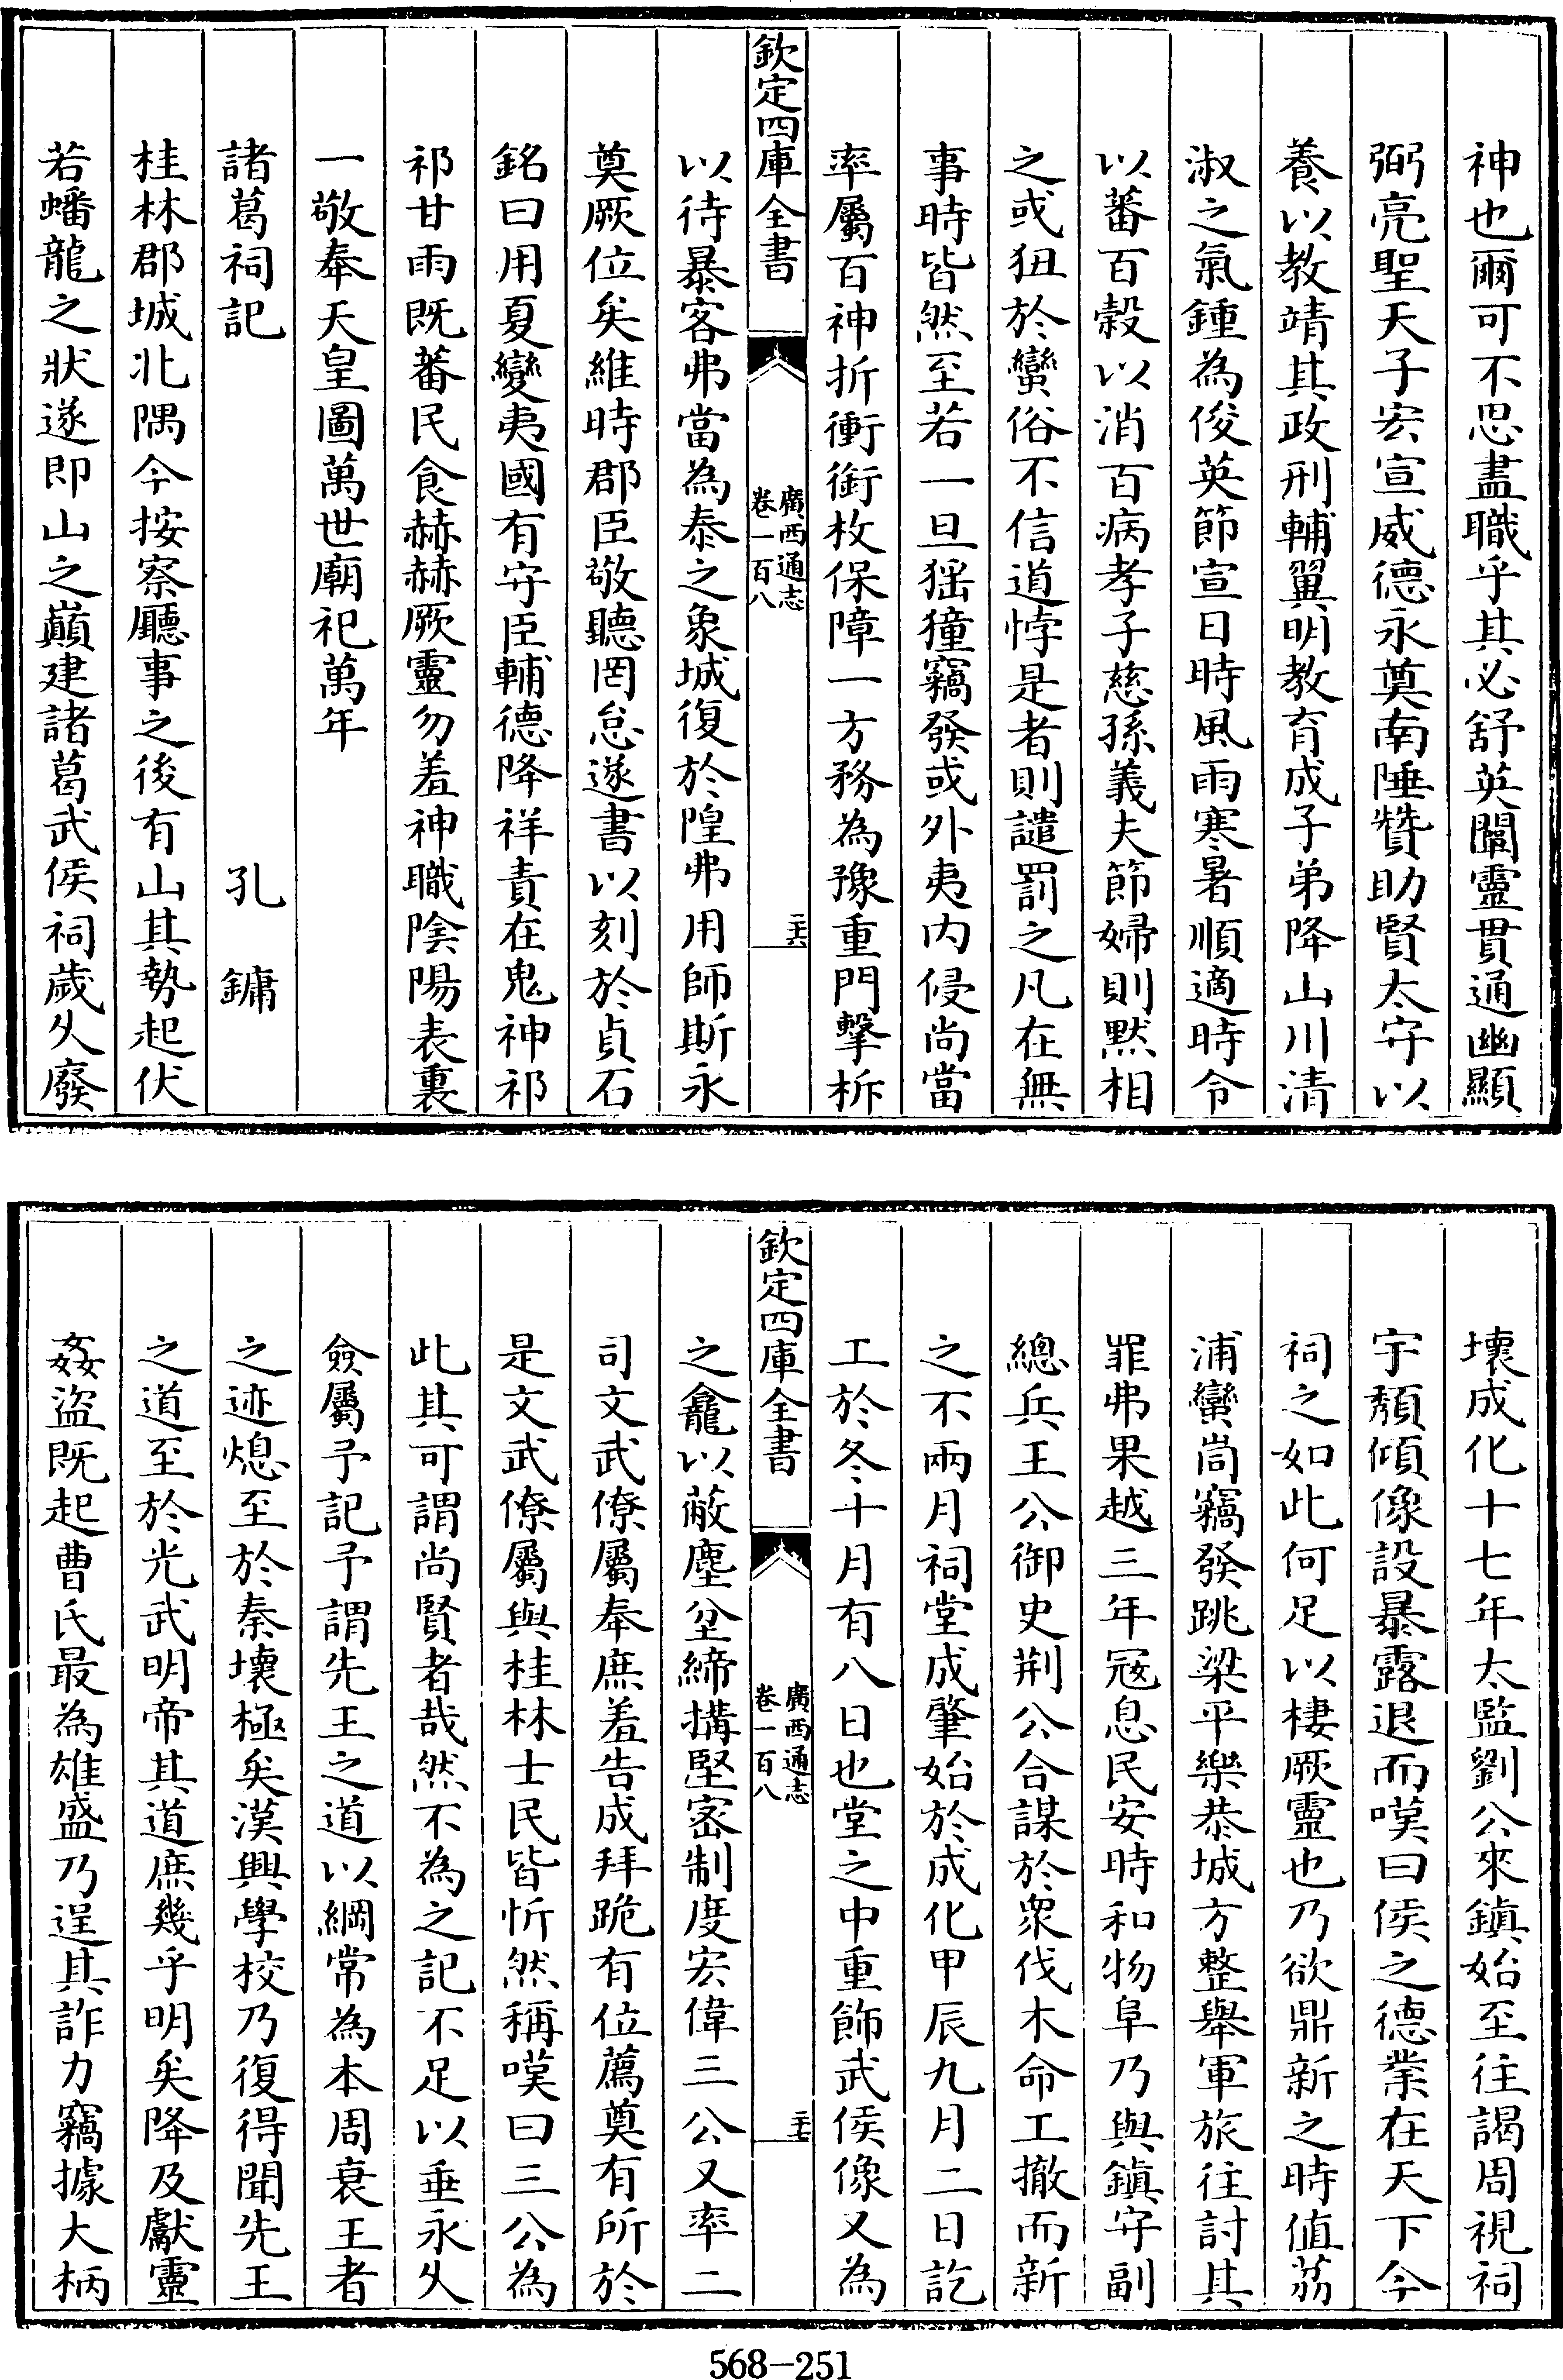 神也爾可不思盡職乎其必舒英闡靈貫通幽顯
弼亮聖天子宏宣威德永奠南陲贊助賢太守以
養以教靖其政刑輔翼明教育成子弟降山川清
淑之氣鍾為俊英節宣日時風雨寒暑順適時令
以蕃百穀以消百病孝子慈孫義夫節婦則默相
之或狃於蠻俗不信道悖是者則譴罰之凡在無
事時皆然至若一旦猺獞竊發或外夷内侵尚當
率屬百神折衝銜枚保障一方務為豫重門擊柝
欽定四庫全書
廣西通志
卷一百八
二十六
以待暴客弗當為泰之象城復於隍弗用師斯永
奠厥位矣維時郡臣敬聽罔怠遂書以刻於貞石
銘曰用夏變夷國有守臣輔德降祥責在鬼神祁
祁甘雨既蕃民食赫赫厥靈勿羞神職陰陽表裏
一敬奉天皇圖萬世廟祀萬年
諸葛祠記 孔鏞
桂林郡城北隅今按察廳事之後有山其勢起伏
若蟠龍之狀遂即山之巔建諸葛武侯祠歲久廢
壞成化十七年太監劉公來鎮始至往謁周視祠
宇頽傾像設暴露退而嘆曰侯之德業在天下今
祠之如此何足以棲厥靈也乃欲鼎新之時值荔
浦蠻峝竊發跳梁平樂恭城方整舉軍旅往討其
罪弗果越三年寇息民安時和物阜乃與鎮守副
總兵王公御史荆公合謀於衆伐木命工撤而新
之不兩月祠堂成肇始於成化甲辰九月二日訖
工於冬十月有八日也堂之中重飾武侯像又為
欽定四庫全書
廣西通志
卷一百八
二十七
之龕以蔽塵坌締搆堅宻制度宏偉三公又率二
司文武僚屬奉庶羞告成拜跪有位薦奠有所於
是文武僚屬與桂林士民皆忻然稱嘆曰三公為
此其可謂尚賢者哉然不為之記不足以垂永久
僉屬予記予謂先王之道以綱常為本周衰王者
之迹熄至於秦壞極矣漢興學校乃復得聞先王
之道至於光武明帝其道庶幾乎明矣降及獻靈
姦盜既起曹氏最為雄盛乃逞其詐力竊據大柄
568-251